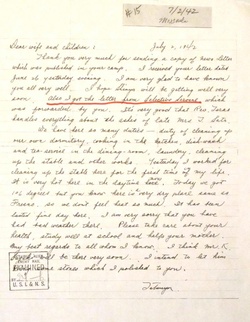 #8
7/2/42
Missoula
Dear wife and children: July 2, 1942
Thank you very much for sending a copy of news letter
which was published in your camp. I received your letter dated
June 26 yesterday evening. I am very glad to have known
you all very well. I hope things will be getting well very
soon. Also I got the letter from Selective Service which
was forwarded by you. It's very good that Rev. 
handles everything about the sales of late Mrs. T. Sato.
We have here so many duties — duty of cleaning up
our own dormitory, cooking in the kitchen, dishwash
and tea served in the dining-room, laundry, cleaning
up the stable and other works. Yesterday I worked for
cleaning up the stable here for the first time of my life.
It is very hot here in the daytime here. Today we got
degree but you know here is very dry place, same as
Fresno. so we don't feel heat so much. It has been
fine day here. I am very sorry that you have
had bad weather there. Please take care about your
health, study well at school and helps your mother.
My best regards to all whom I know. I think Mr. K.
will be there very soon. I intend to let him
some stones which I polished to you.
EXAMINED
U.S.I.&N.S.